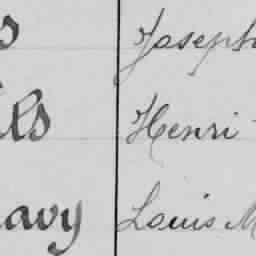 s Joseph
ls Henri
avy Louis M